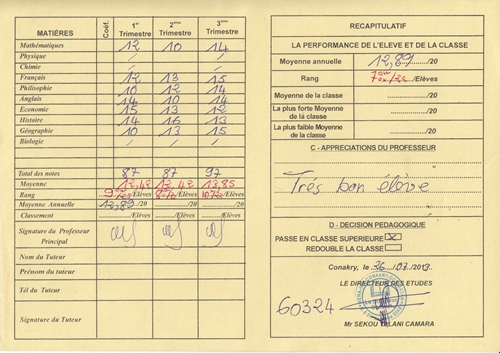 MATIÈRES Coéf. 1er Trimestre 2ème Trimestre 3ème Trimestre
Mathématiques 12 10 14
Physique / / /
Chimie / / /
Français 12 13 15
Philosophie 10 12 14
Anglais 14 10 14
Economie 15 13 12
Histoire 14 16 13
Géographie 10 13 15
Biologie / / /
Total des notes 87 87 97
Moyenne 12,42 12,42 13,85
Rang /Elèves /Elèves /Elèves
Moyenne Annuelle 12,89/20 /20 /20
Classement /Elèves /Elèves /Elèves
Signature du Professeur Principal
Nom du Tuteur
Prénom du tuteur
Tél du Tuteur
Signature du Tuteur
RECAPITULATIF
LA PERFORMANCE DE L'ELEVE ET DE LA CLASSE
Moyenne annuelle 12,89/20
Rang 7ex/22/Elèves
Moyenne de la classe /20
La plus forte Moyenne de la classe /20
La plus faible Moyenne de la classe /20
C - APPRECIATIONS DU PROFESSEUR
Trés bon élève
D - DECISION PEDAGOGIQUE
PASSE EN CLASSE SUPERIEURE
REDOUBLE LA CLASSE
Conakry, le 26/07/2013
LE DIRECTEUR DES ETUDES
60324
Mr SEKOU CAMARA